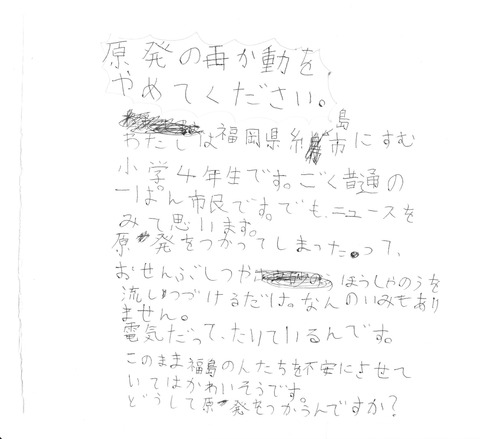 原発の再か動を
やめてください。
わたしは福岡県糸島市にすむ
小学4年生です。ごく普通の
一ぱん市民です。でも、ニュースを
みて思います。
原発をつかってしまったって、
おせんぶしつや ほうしゃのうを
流しつづけるだけは。なんのいみもあり
ません。
電気だって、たりているんです。
このまま福島の人たちを不安にさせて
いてはかわいそうです。
どうして原発をつかうんですか?